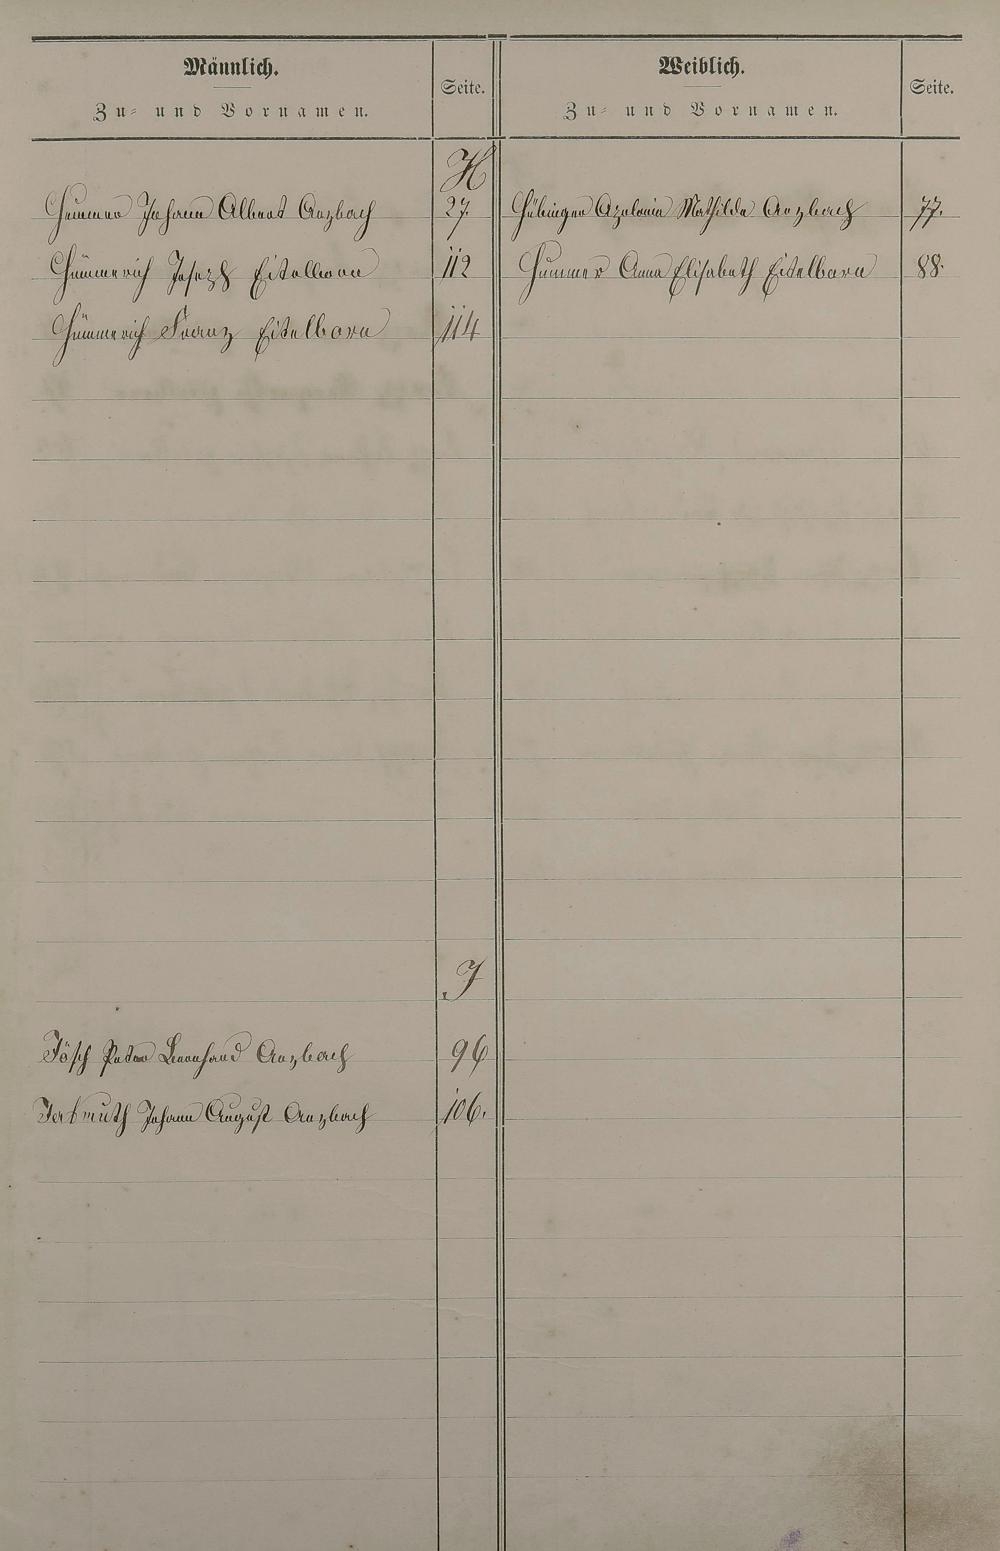 Männlich.
Zu- und Vornamen.
Seite.
Weiblich.
Zu- und Vornamen.
Seite.
H
Hummer Johann Albert Arzbach 27.
Hübinger Apolonia Mathilde Arzbach 77.
Hümmerich Joseph Eitelborn 112
Hummer Anna Elisabeth Eitelborn 88.
Hümmerich Franz Eitelborn 114
J
Jösch Peter Bernhard Arzbach 96
Johann August Arzbach 106.